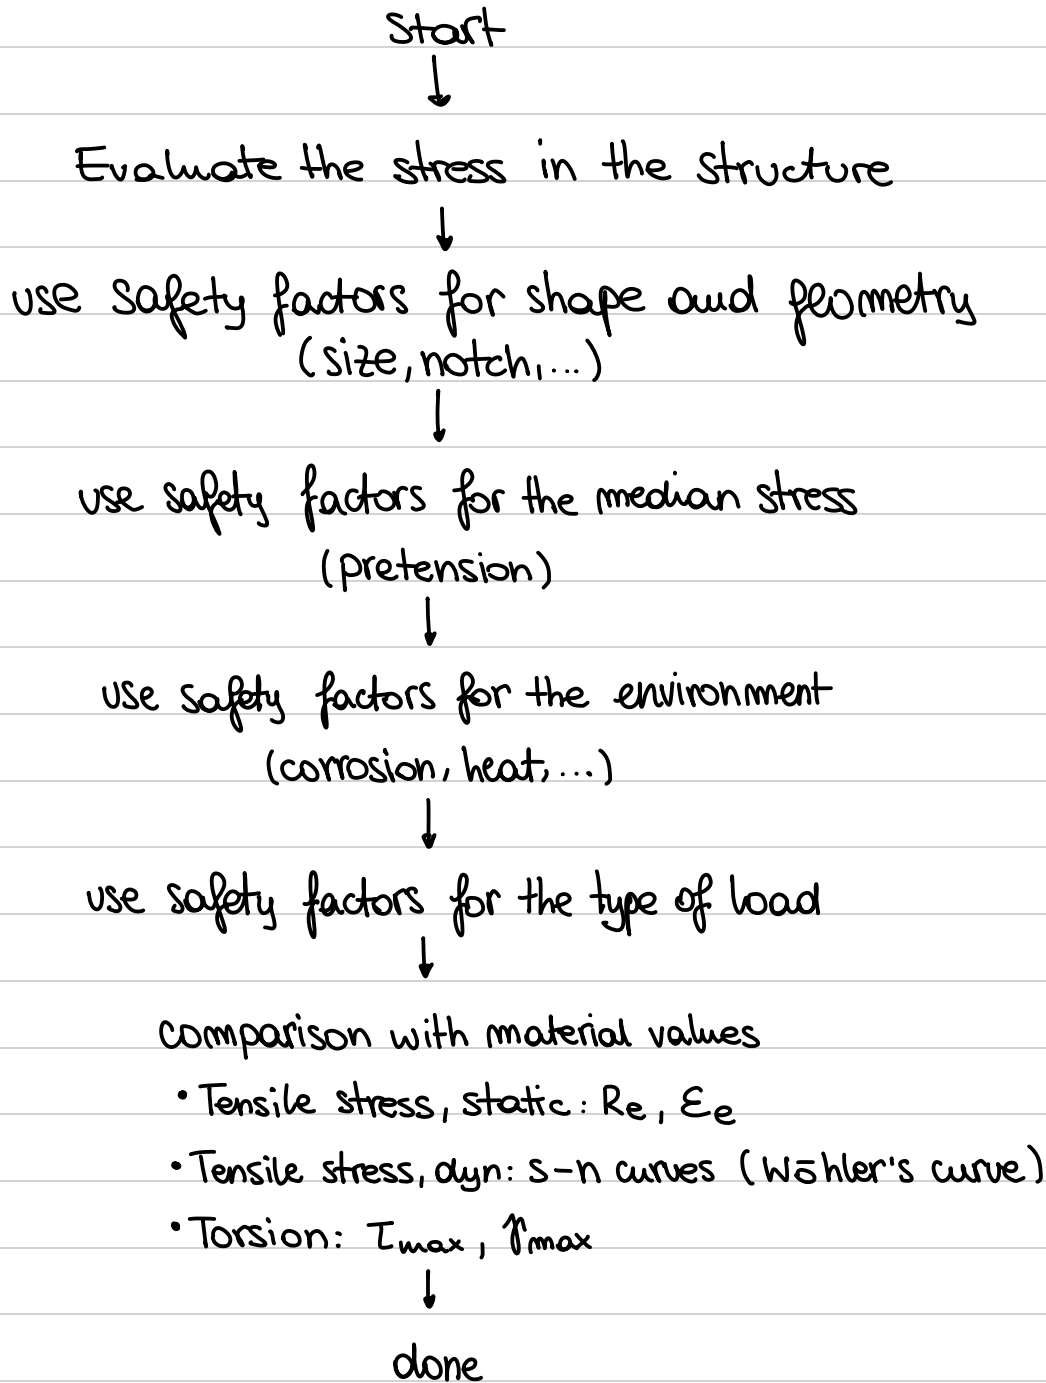 Start
Evaluate the stress in the structure
use safety factors for shape and geometry
(size, notch, ...)
use safety factors for the median stress
(pretension)
use safety factors for the environment
(corrosion, heat, ...)
use safety factors for the type of load
comparison with material values
• Tensile stress, static: Re, εe
• Tensile stress, dyn: s-n curves (Wöhler's curve)
• Torsion: τmax, γmax
done